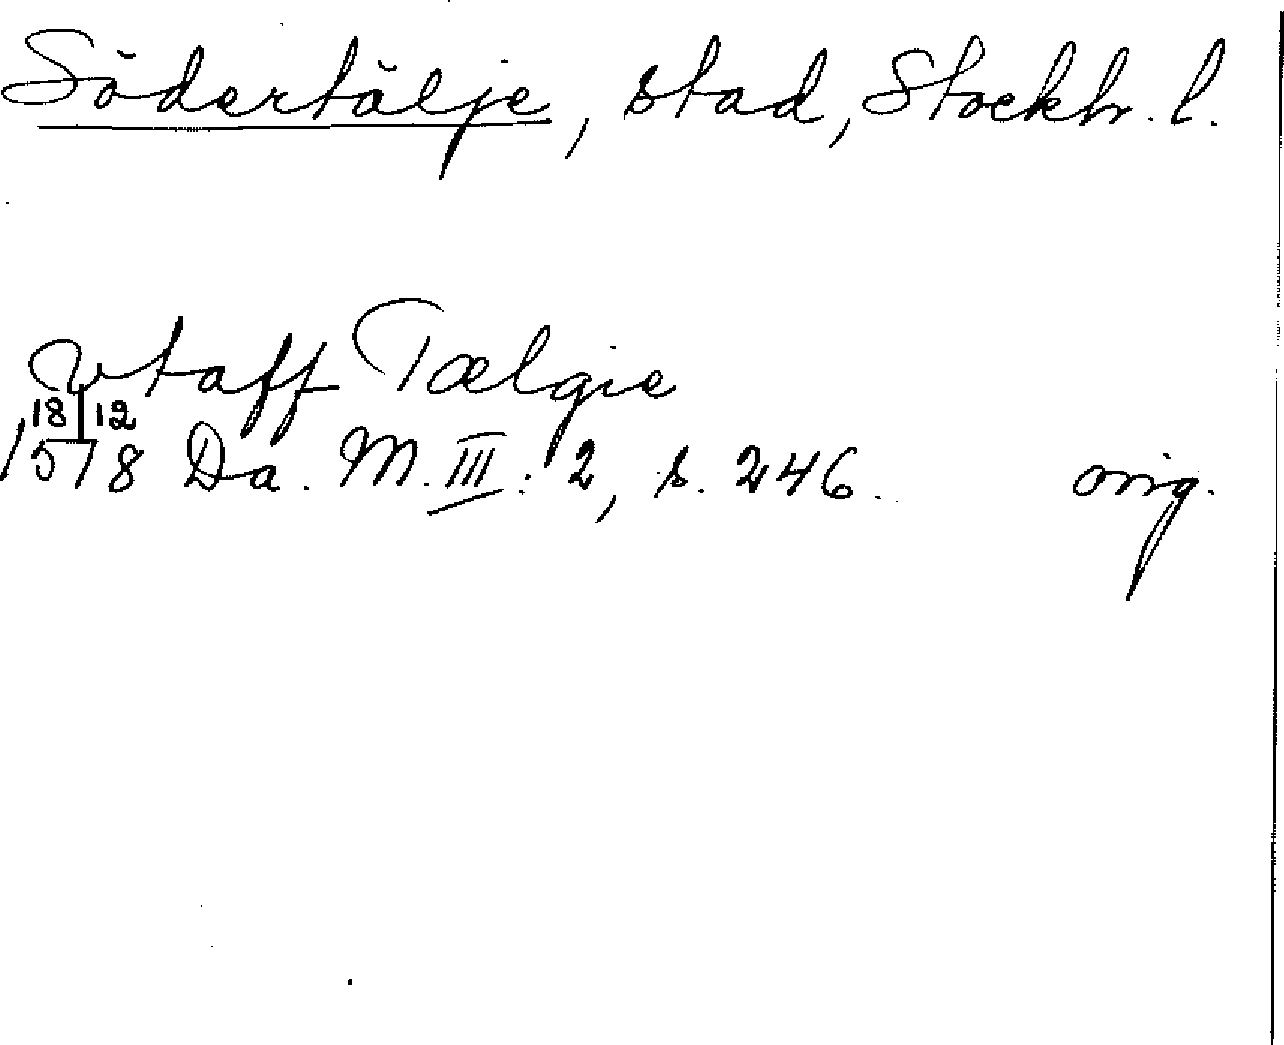 Södertälje, stad, Stockh. l.
vtaff Tælgie
18 12
1578 Da. M. III: 2, s. 246. orig.